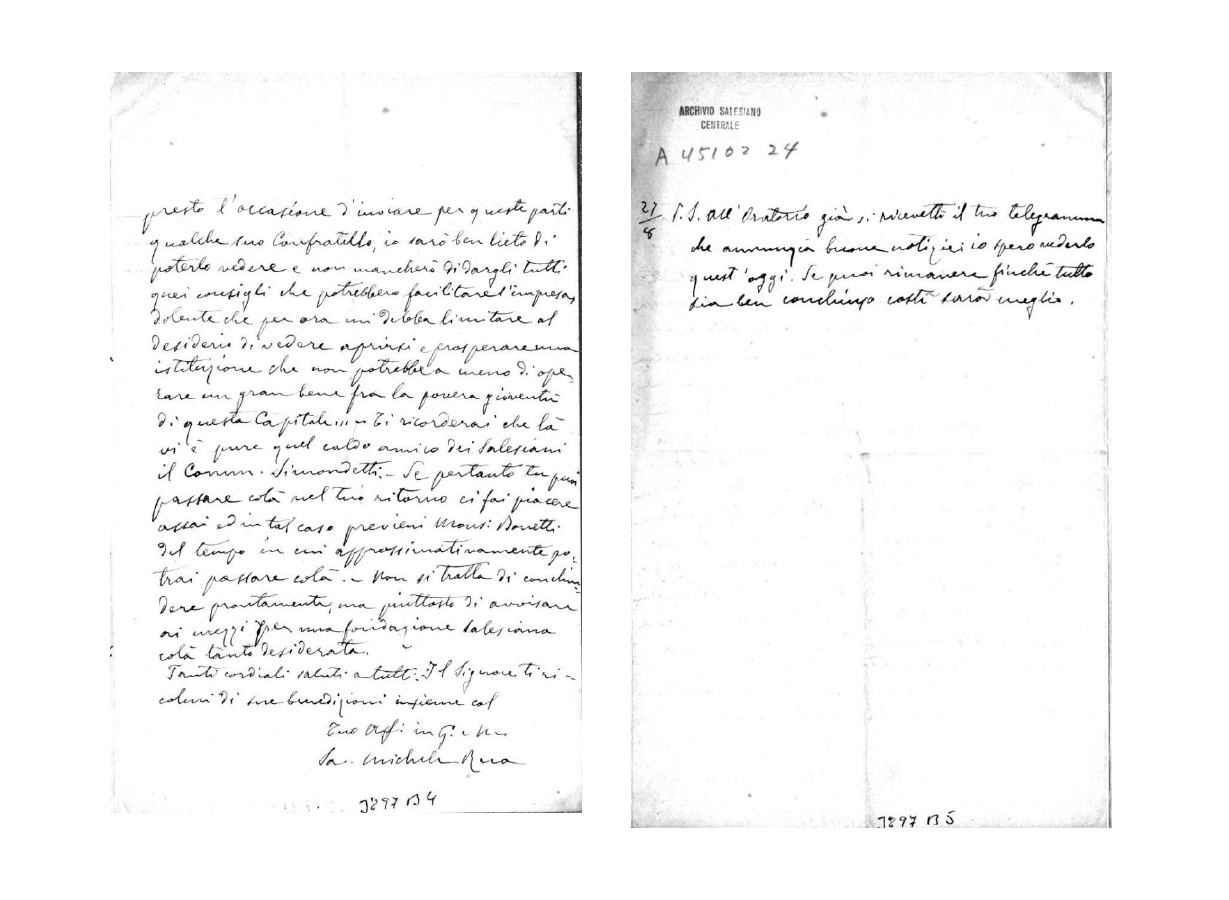 presto l'occasione d'inviare per queste parti
qualche suo Confratello, io sarò ben lieto di
poterlo vedere e non mancherò di dargli tutti
quei consigli che potrebbero facilitare l'impresa,
dolente che per ora mi debba limitare al
desiderio di vedere aprirsi e prosperare una
istituzione che non potrebbe a meno di ope-
rare un gran bene fra la povera gioventù
di questa Capitale... - Ti ricorderai che là
vi è pure quel caldo amico dei Salesiani
il Comm. Simondetti. - Se pertanto tu puoi
passare colà nel tuo ritorno ci fai piacere
assai ed in tal caso previeni Mons. Bonetti
del tempo in cui approssimativamente po-
trai passare colà. - Non si tratta di conchiu-
dere prontamente, ma piuttosto di avvisare
ai mezzi per una fondazione salesiana
colà tanto desiderata.
Tanti cordiali saluti a tutti. Il Signore ti ri-
colmi di sue benedizioni insieme col
Tuo aff. in G. e M.
Sac. Michele Rua
J897 B4
ARCHIVIO SALESIANO
CENTRALE
A 45102 24
27/8 P.S. All'Oratorio già si ricevette il tuo telegramma
che annunzia buone notizie: io spero vederlo
quest'oggi. Se puoi rimanere finchè tutto
sia ben conchiuso costì sarà meglio.
J897 B5